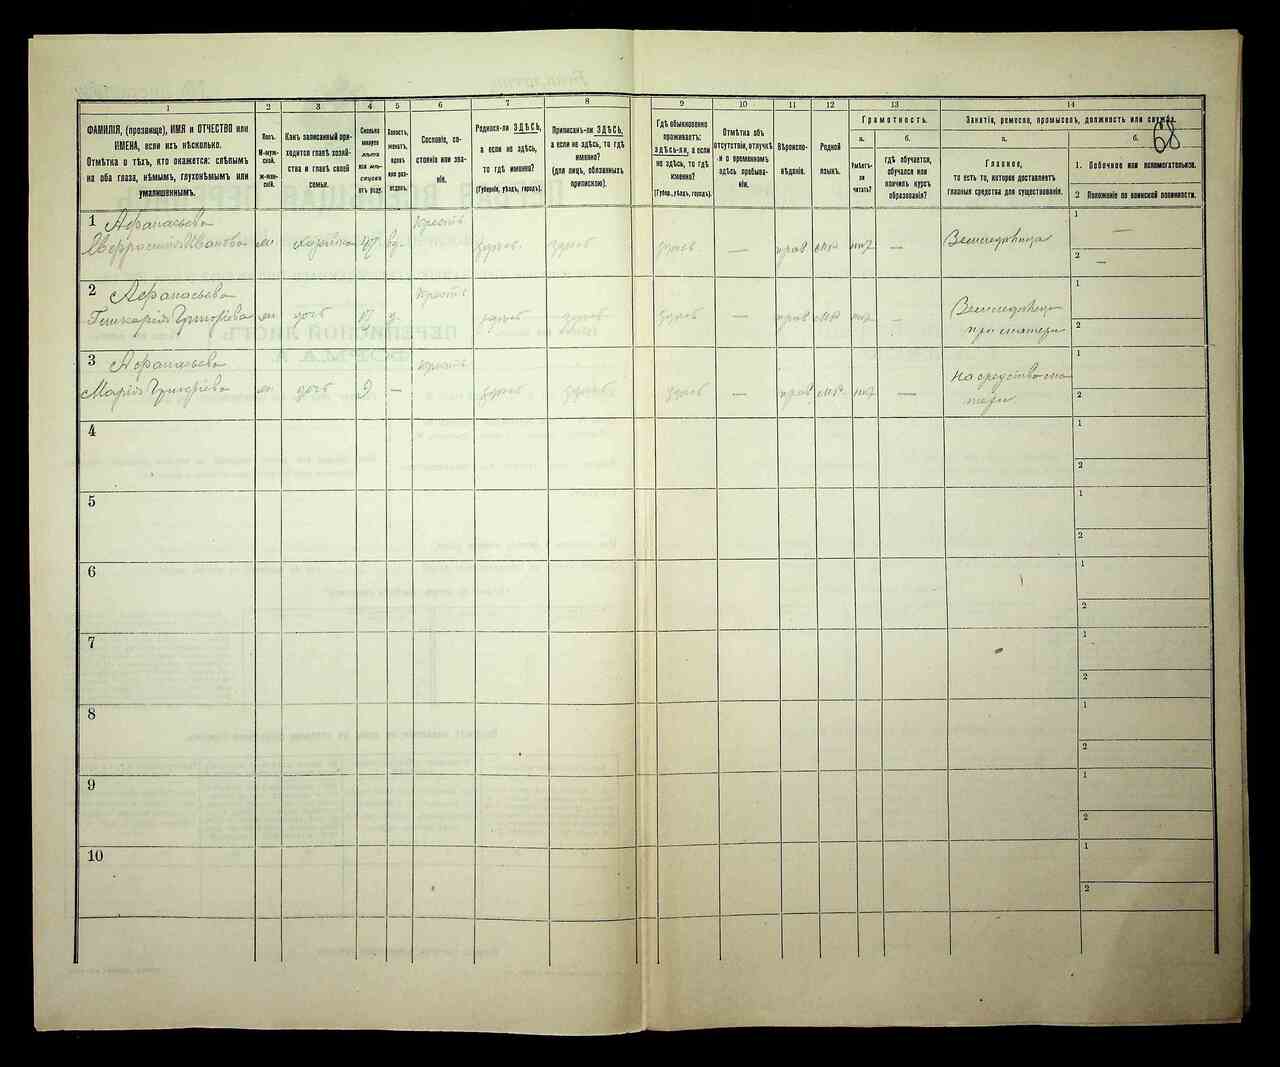 68
1
2
3
4
5
6
7
8
9
10
11
12
13
14
ФАМИЛІЯ, (прозвище), ИМЯ и ОТЧЕСТВО или
ИМЕНА, если ихъ нѣсколько.
Отмѣтка о тѣхъ, кто окажется: слѣпымъ
на оба глаза, нѣмымъ, глухонѣмымъ или
умалишеннымъ.
Полъ.
М-муж-
ской.
Ж-жен-
скій.
Какъ записанный при-
ходится главѣ хозяй-
ства и главѣ своей
семьи.
Сколько
минуло
лѣтъ
или мѣ-
сяцевъ
отъ роду.
Холостъ,
женатъ,
вдовъ
или раз-
веденъ.
Сословіе, со-
стояніе или зва-
ніе.
Родился-ли ЗДѢСЬ,
а если не здѣсь,
то гдѣ именно?
(Губернія, уѣздъ, городъ).
Приписанъ-ли ЗДѢСЬ,
а если не здѣсь, то гдѣ
именно?
(для лицъ, обязанныхъ
припискою).
Гдѣ обыкновенно
проживаетъ:
ЗДѢСЬ-ли, а если
не здѣсь, то гдѣ
именно?
(Губер., уѣздъ, городъ).
Отмѣтка объ
отсутствіи, отлучкѣ
и о временномъ
здѣсь пребыва-
ніи.
Вѣроиспо-
вѣданіе.
Родной
языкъ.
Грамотность.
а.
Умѣетъ-
ли
читать?
б.
гдѣ обучается,
обучался или
кончилъ курсъ
образованія?
Занятіе, ремесло, промыселъ, должность или служба.
а.
Главное,
то есть то, которое доставляетъ
главныя средства для существованія.
б.
1. Побочное или вспомогательное.
2 Положеніе по воинской повинности.
1 Афанасьева
Евфросинія Иванова ж хозяйка 47 вд. Крестъ здѣсь здѣсь здѣсь — прав нѣт — Земледѣлица
1 —
2 —
2 Афанасьева
Григорьева ж дочь 17 д Крестъ здѣсь здѣсь здѣсь — прав нѣт — Земледѣлица
при матери
1
2
3 Афанасьева
Марія Григорьева ж дочь 9 — Крестъ здѣсь здѣсь здѣсь — прав нѣт — на средства ма
тери
1
2
4
1
2
5
1
2
6
1
2
7
1
2
8
1
2
9
1
2
10
1
2